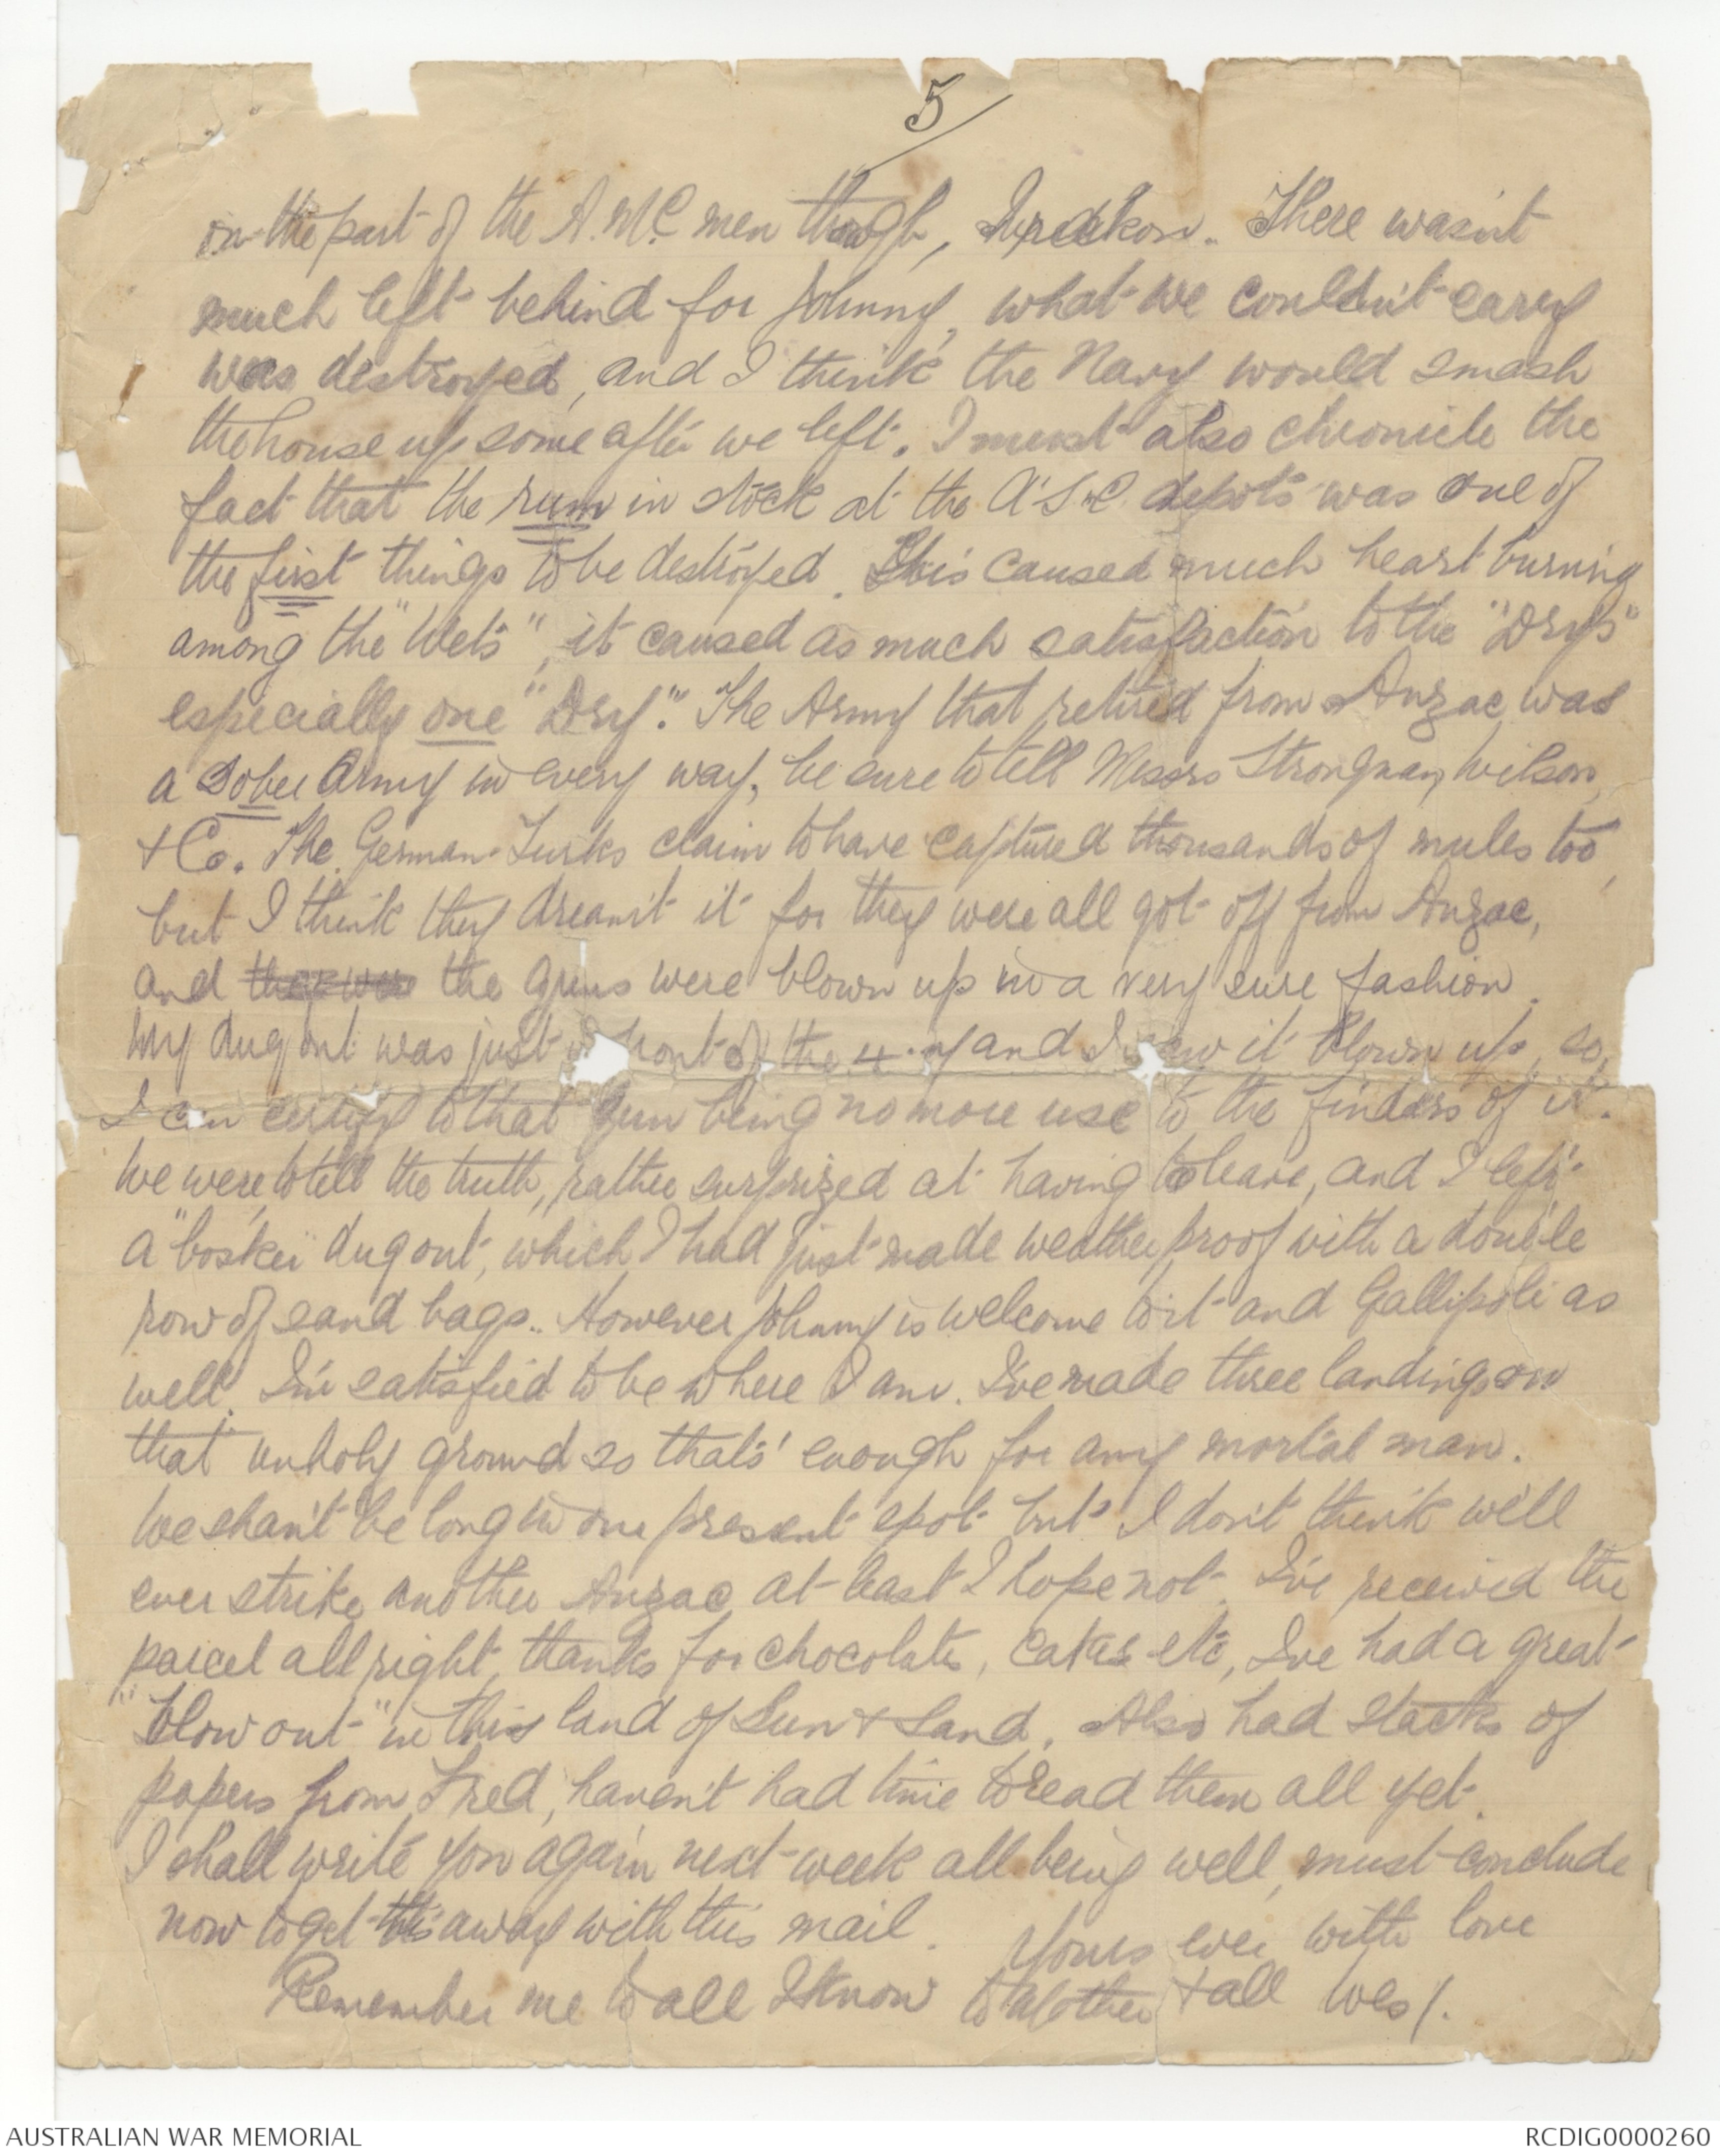 5/
on the part of the A.M.C. men though, I reckon. There wasn't
much left behind for Johnny, what we couldn't carry
was destroyed, and I think the Navy would smash
the house up some after we left. I must also chronicle the
fact that the rum in stock at the A.S.C. depots was one of
the first things to be destroyed. This caused much heart burning
among the "Wets", it caused as much satisfaction to the "Drys"
especially one "Dry". The Army that retired from Anzac was
a sober Army in every way, be sure to tell Messrs Strongman, Wilson,
+ Co. The German-Turks claim to have captured thousands of mules too,
but I think they dream't it for they were all got off from Anzac,
and they were the guns were blown up in a very sure fashion.
My dug out was just front of the 4.7 and I saw it blown up, so,
I can certify to that gun being no more use to the finders of it.
We were, to tell the truth, rather surprized at having to leave, and I left
a "bosker" dug out, which I had just made weather proof with a double
row of sand bags.. However Johnny is welcome to it and Gallipoli as
well. I'm satisfied to be where I am. I've made three landings on
that unholy ground so that's' enough for any mortal man.
We shan't be long in our present spot but I don't think we'll
ever strike another Anzac at least I hope not. I've received the
parcel all right, thanks for chocolate, cakes etc, I've had a great
"blow out" in this land of Sun + Sand. Also had stacks of
papers from Fred, haven't had time to read them all yet.
I shall write you again next week all being well, must conclude
now to get this away with this mail. Yours ever with love
Remember me to all I know to Mother + all Wes /.
AUSTRALIAN WAR MEMORIAL
RCDIG0000260